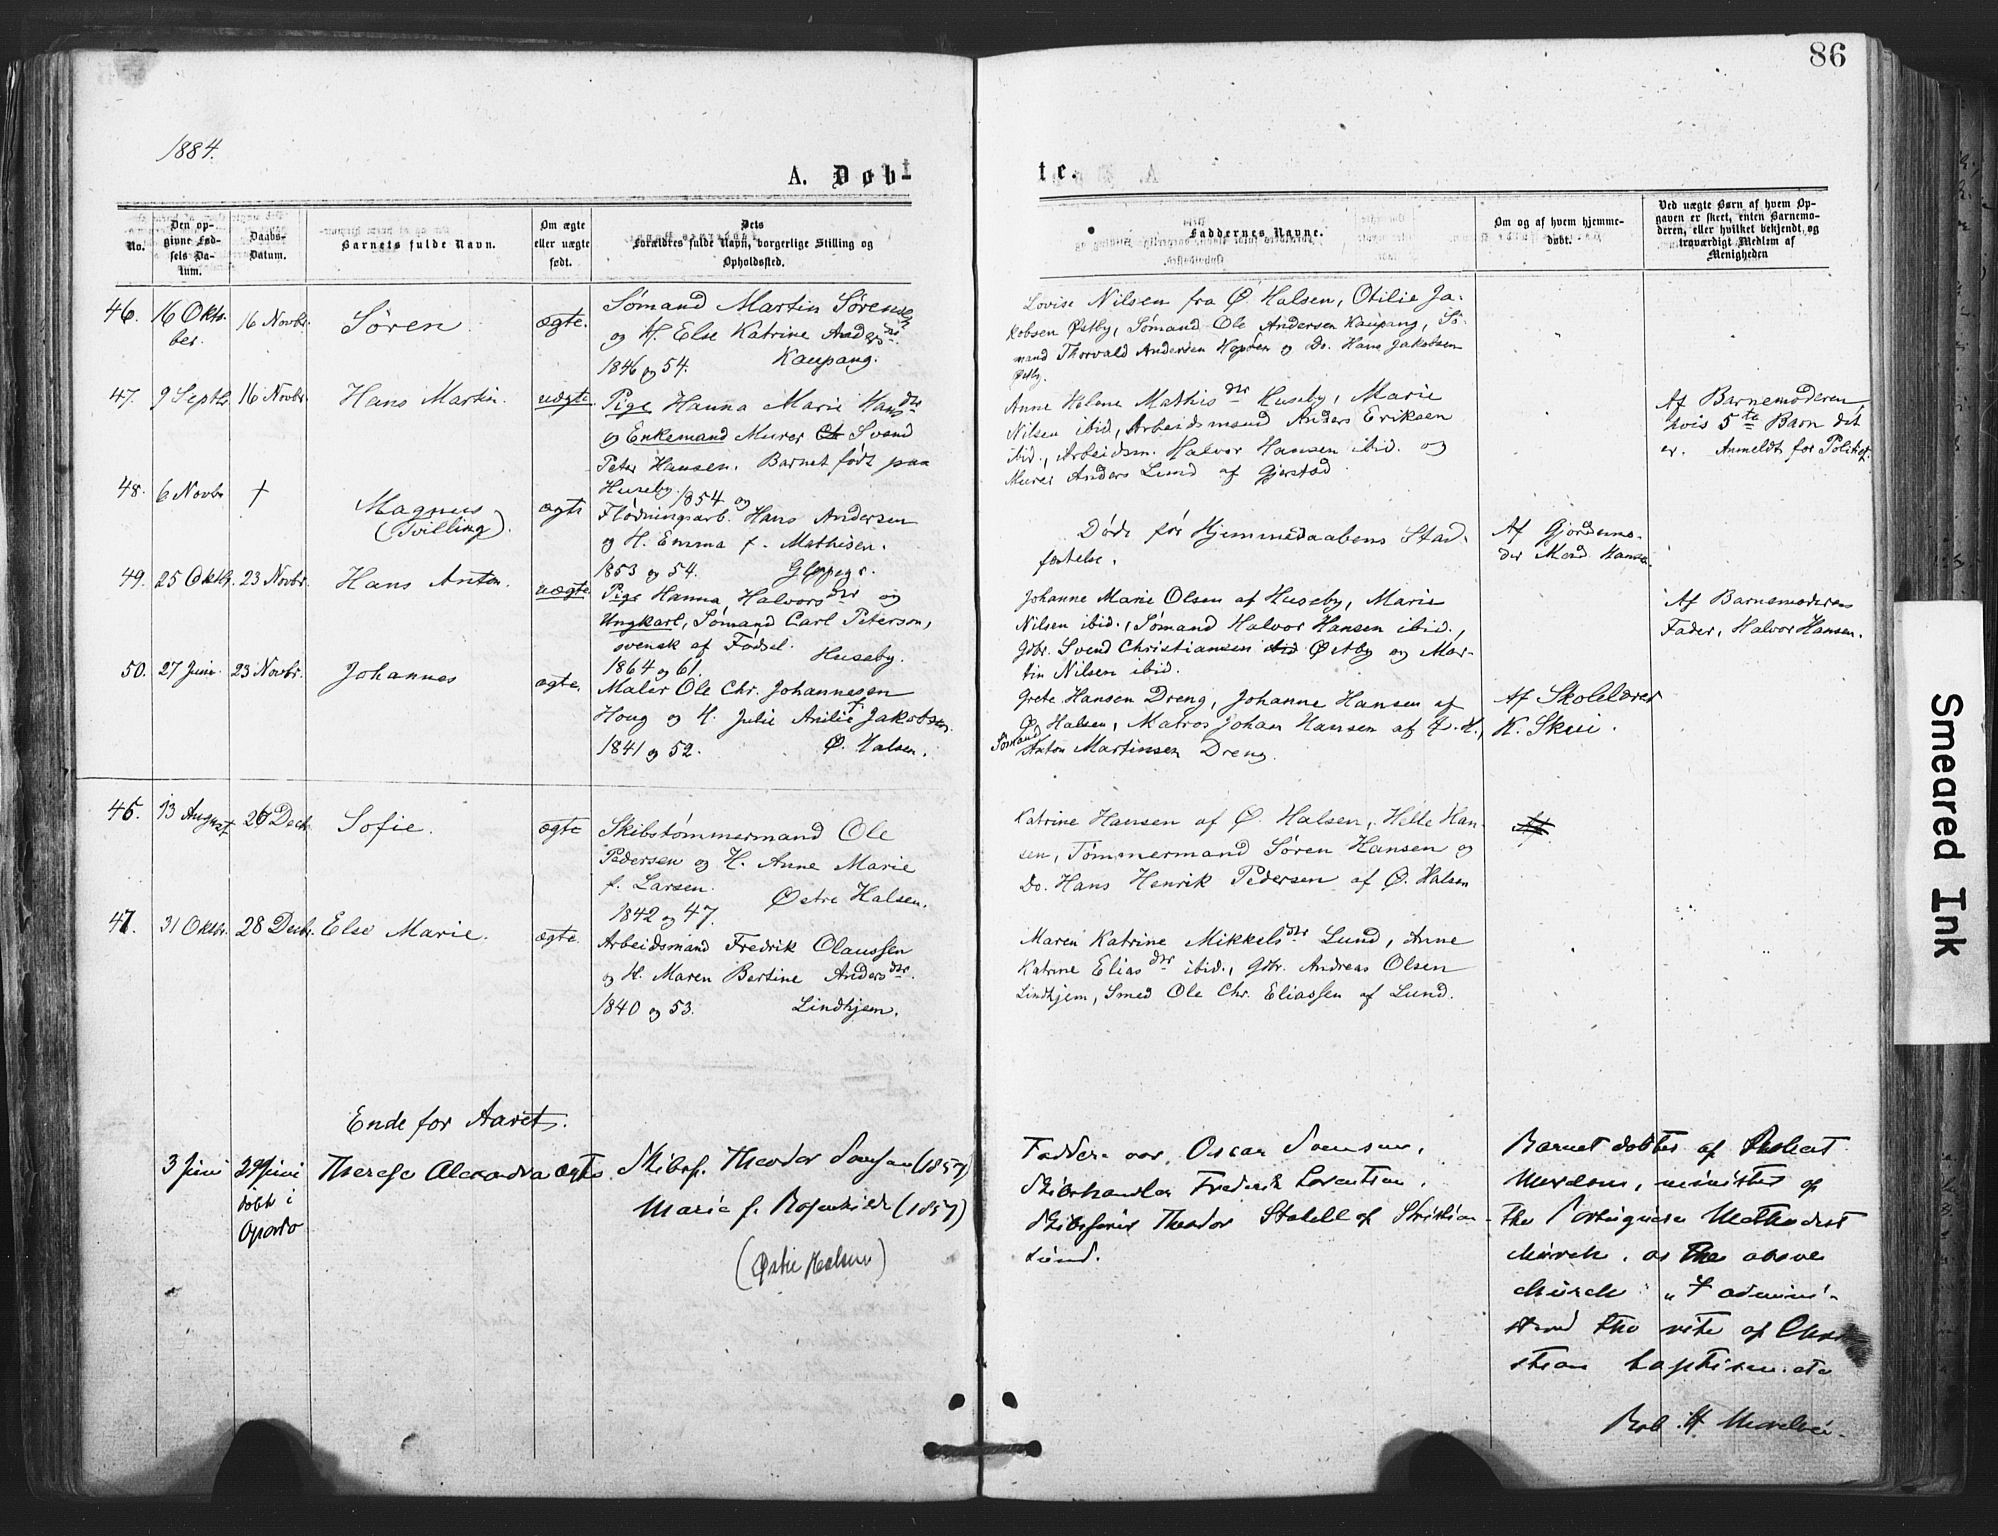 86
1884.
A. Døbte.
No.
Den opgivne Fødsels Datum.
Daabs-Datum.
Barnets fulde Navn.
Om ægte eller uægte født.
Dets Forældres fulde Navn, borgerlige Stilling og Opholdssted.
Faddernes Navne.
Om og af hvem hjemmedøbt.
Ved uægte Børn af hvem Opgaven er skeet, enten Barnemoderen, eller hvilket bekjendt og troværdigt Medlem af Menigheden
46. 16 Oktober. 16 Novbr. Søren ægte.
Sømand Martin Sørensen
og H. Else Katrine Andersdtr.
1846 og 54. Kaupang.
Lovise Nilsen fra Ø. Halsen, Otilie Ja-
kobsen Østby, Sømand Ole Andersen Kaupang, Sø-
mand Thorvald Andersen og Do. Hans Jakobsen
Østby.
47. 9 Septbr. 16 Novbr. Hans Martin. uægte.
Pige Hanna Marie Hansdtr
og Enkemand Murer Svend
Peter Hansen. Barnet født paa
Huseby. 1854 og
Anne Helene Mathisdtr Huseby, Marie
Nilsen ibid, Arbeidsmand Anders Eriksen
ibid., Arbeidsm. Halvor Hansen ibid. og
Murer Anders Lund af Gjerstad.
Af Barnemoderen,
hvis 5te Barn det
er. Anmeldt for Politiet.
48. 6 Novbr † Magnus
(Tvilling). ægte
Flødningsarb. Hans Andersen
og H. Emma f. Mathisen.
1853 og 54.
Døde før Hjemmedaabens Stad-
festelse.
Af Gjordemo-
der Hansen.
49. 25 Oktbr. 23 Novbr. Hans Anton. uægte
Pige Hanna Halvorsdtr og
Ungkarl, Sømand Carl Peterson,
svensk af Fødsel.
1864 og 61. Huseby.
Johanne Marie Olsen af Huseby, Marie
Nilsen ibid., Sømand Halvor Hansen ibid.,
Gbr. Svend Christiansen Østby og Mar-
tin Nilsen ibid.
Af Barnemoderens
Fader, Halvor Hansen.
50. 27 Juni. 23 Novbr. Johannes ægte.
Maler Ole Chr. Johannesen
Houg og H. Julie Amilie f. Jakobsen
1841 og 52. Ø. Halsen.
Grete Hansen Dreng, Johanne Hansen af
Ø. Halsen, Matros Johan Hansen af Ø. H.,
Sømand Anton Martinsen Dreng.
Af Skolelærer
K. Skui.
46. 13 August 26 Decbr. Sofie. ægte
Skibstømmermand Ole
Pedersen og H. Anne Marie
f. Larsen. Østre Halsen.
1842 og 47.
Katrine Hansen af Ø. Halsen, Helle Han-
sen, Tømmermand Søren Hansen og
Do. Hans Henrik Pedersen af Ø. Halsen
47. 31 Oktbr. 28 Decbr. Else Marie. ægte.
Arbeidsmand Fredrik Olaussen
og H. Maren Bertine Andersdtr.
1840 og 53. Lindhjem.
Maren Katrine Mikkelsdtr Lund, Anne
Katrine Eliasdtr ibid., Gbr. Andreas Olsen
Lindhjem, Smed Ole Chr. Eliassen af Lund.
Ende for Aaret.
3 Juni 29 Juni
døbt i
Oporto
Therese Alexandra ægte
Skibsf. Theodor (1857)
Marie f. (1857)
(Østre Halsen)
Faddere var Oscar
Skibshandler Frederik Lorentzen,
Skibsfører Theodor af Kristian-
sund.
Barnet døbtes af Robert
minister of
the Portuguese Methodist
church, as the above
church "I admini-
stred the rite of Chri-
stian baptism etc
Rob. H.
Smeared Ink